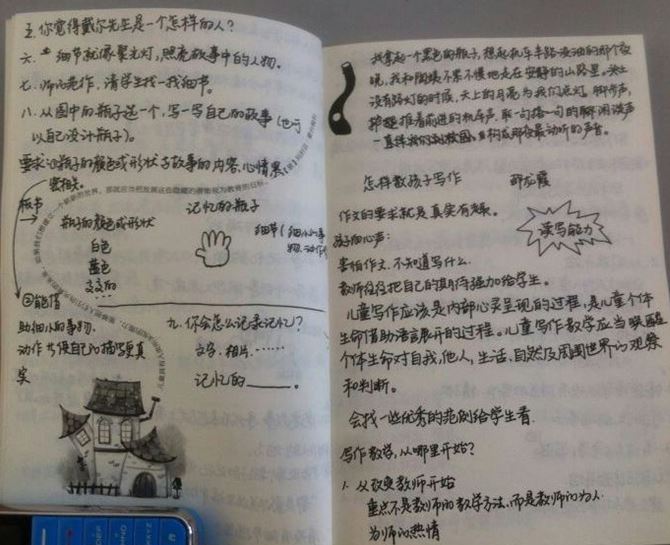 五.你觉得戴尔先生是一个怎样的人?
六. 细节就像聚光灯,照亮故事中的人物。
七.师范作,请学生找一找细节。
八.从图中的瓶子选一个,写一写自己的故事(也可
以自己设计瓶子)。
要求:让瓶子的颜色或形状与故事的内容、心情
紧相关。
板书
瓶子的颜色或形状
白色
蓝色
记忆的瓶子
细节(细小的事
物.动作
助细小的事物.
动作 使自己的描写更真
实
九.你会怎么记录记忆?
文字.相片.……
记忆的____。
我拿起一个黑色的瓶子,想起
晚,我和 不紧不慢地走在安静的山路里,
没有路灯的时候,天上的月亮为我们点灯,脚步声,
推着前进的机车声,
怎样教孩子写作
作文的要求就是真实有趣。
读写能力
孩子的心声:
害怕作文.不知道写什么.
教师没没把自己的期待强加给学生。
儿童写作应该是内部心灵呈现的过程,是儿童个体
生命借助语言展开的过程。儿童写作教学应当唤醒
个体生命对自我,他人,生活,自然及周围世界的观察
和判断。
会找一些优秀的范例给学生看.
写作教学,从哪里开始?
1.从改变教师开始
重点不是教师的教学方法,而是教师的为人.
为师的热情